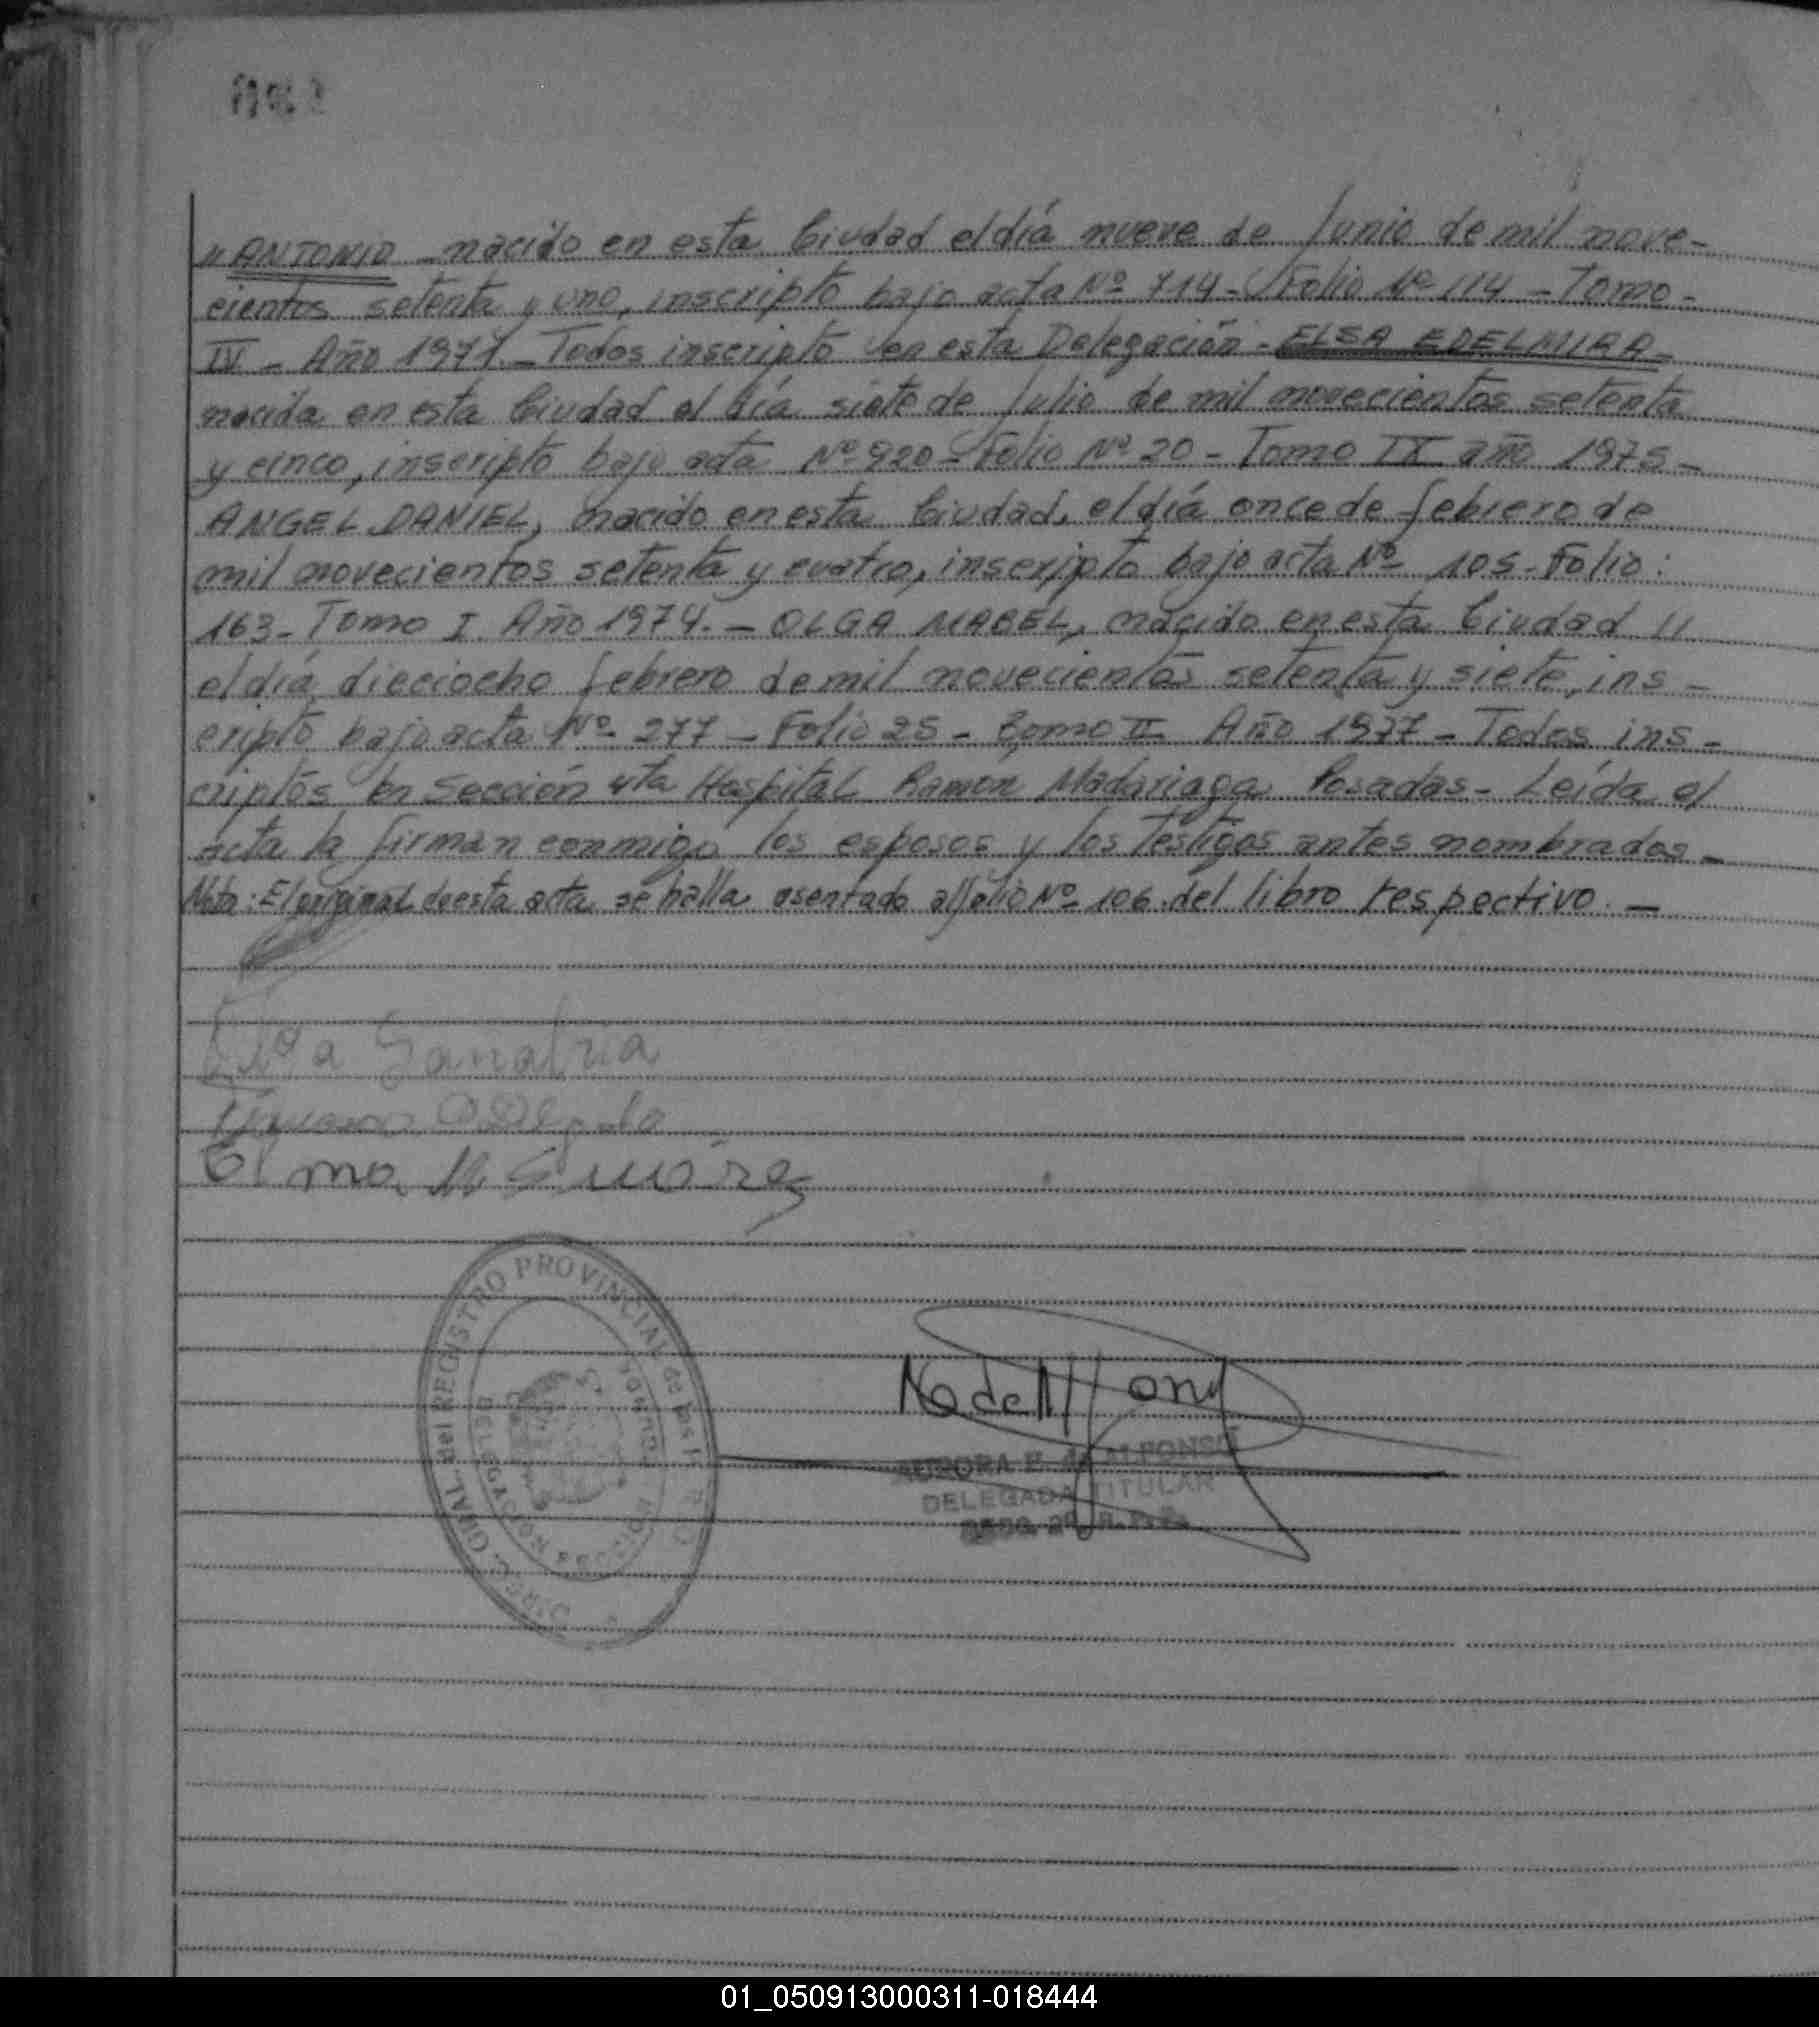 " ANTONIO - nacido en esta Ciudad el día nueve de Junio de mil nove-
cientos setenta y uno, inscripto bajo acta Nº 714 - Folio Nº 114 - Tomo -
IV - Año 1971 - Todos inscripto en esta Delegación - ELSA EDELMIRA -
nacida en esta Ciudad el día siete de Julio de mil novecientos setenta
y cinco, inscripto bajo acta Nº 920 - Folio Nº 20 - Tomo IX año 1975 -
ANGEL DANIEL, nacido en esta Ciudad, el día once de febrero de
mil novecientos setenta y cuatro, inscripto bajo acta Nº 105 - Folio:
163 - Tomo I Año 1974. - OLGA MABEL, nacido en esta Ciudad "
el día dieciocho febrero de mil novecientos setenta y siete, ins -
cripto bajo acta Nº 277 - Folio 25 - Tomo II Año 1977 - Todos ins -
criptos en Sección 4ta Hospital Ramón Madariaga Posadas - Leída el
acta la firman conmigo los esposos y los testigos antes nombrados -
Nota: El original de esta acta se halla asentado al folio Nº 106 del libro respectivo. -
Sanabria
REGISTRO PROVINCIAL de las
DIREC. GRAL. del
DELEGACION
AURORA E. de ALFONSO
DELEGADA TITULAR
01_050913000311-018444